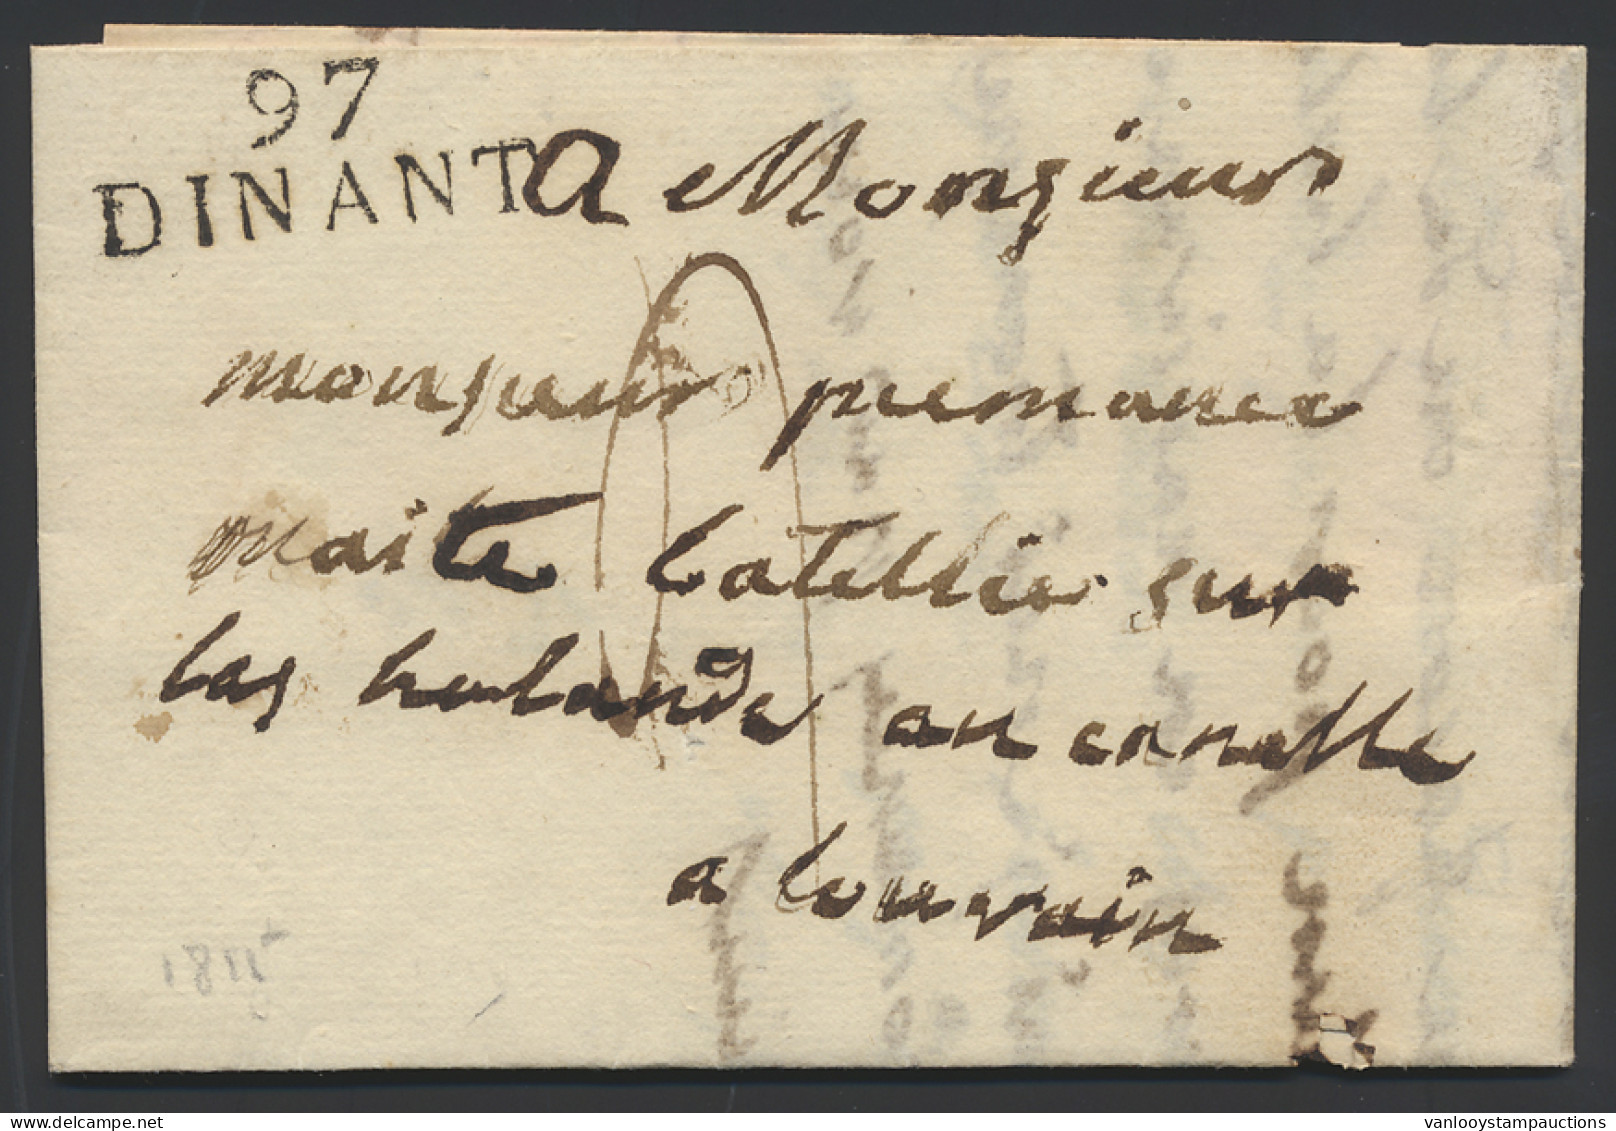 97
DINANT
a Monsieur
monsieur
maite batellier sur
las holande au canalle
a louvain
1815
vanlooystampauctions